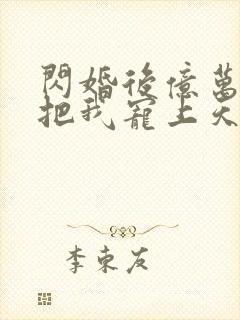 閃婚後億萬
把我寵上天
李東友